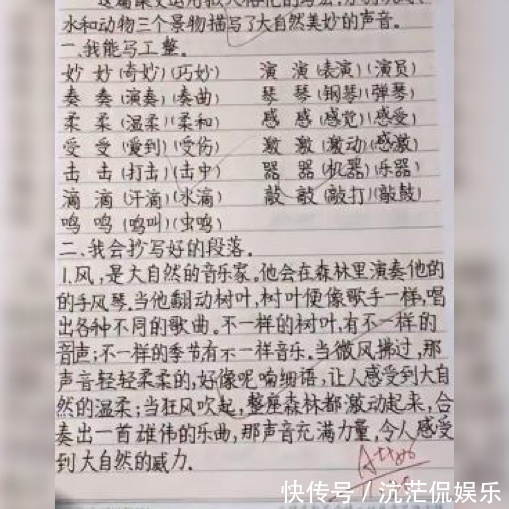 水和动物三个景物描写了大自然美妙的声音。
一、我能写工整。
妙 妙(奇妙)(巧妙) 演 演(表演)(演员)
奏 奏(演奏)(奏曲) 琴 琴(钢琴)(弹琴)
柔 柔(温柔)(柔和) 感 感(感觉)(感受)
受 受(受到)(受伤) 激 激(激动)(感激)
击 击(打击)(击中) 器 器(机器)(乐器)
滴 滴(汗滴)(水滴) 敲 敲(敲打)(敲鼓)
鸣 鸣(鸣叫)(虫鸣)
二、我会抄写好的段落。
1.风,是大自然的音乐家。他会在森林里演奏他的
的手风琴。当他翻动树叶,树叶便像歌手一样,唱
出各种不同的歌曲。不一样的树叶,有不一样的
音声;不一样的季节有不一样音乐。当微风拂过,那
声音轻轻柔柔的,好像呢喃细语,让人感受到大自
然的温柔;当狂风吹起,整座森林都激动起来,合
奏出一首雄伟的乐曲,那声音充满力量,令人感受
到大自然的威力.
快传号／沆茫侃娱乐